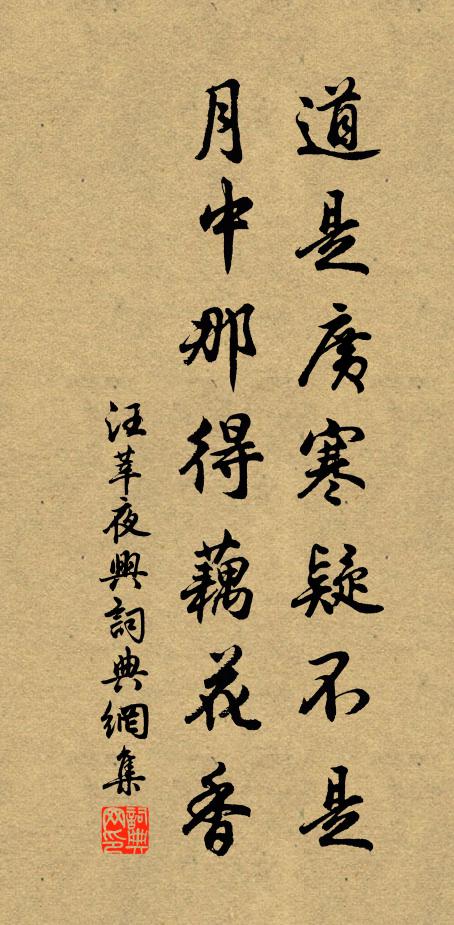 道是廣寒疑不是
月中那得藕花香
汪莘夜興詞典網集
詞典網印